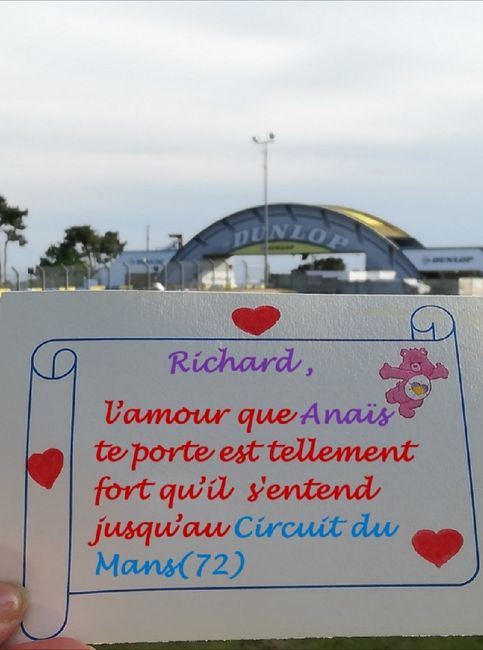 DUNLOP
DUNLOP
DUNLOP
Richard ,
l'amour que Anaïs
te porte est tellement
fort qu'il s'entend
jusqu'au Circuit du
Mans(72)